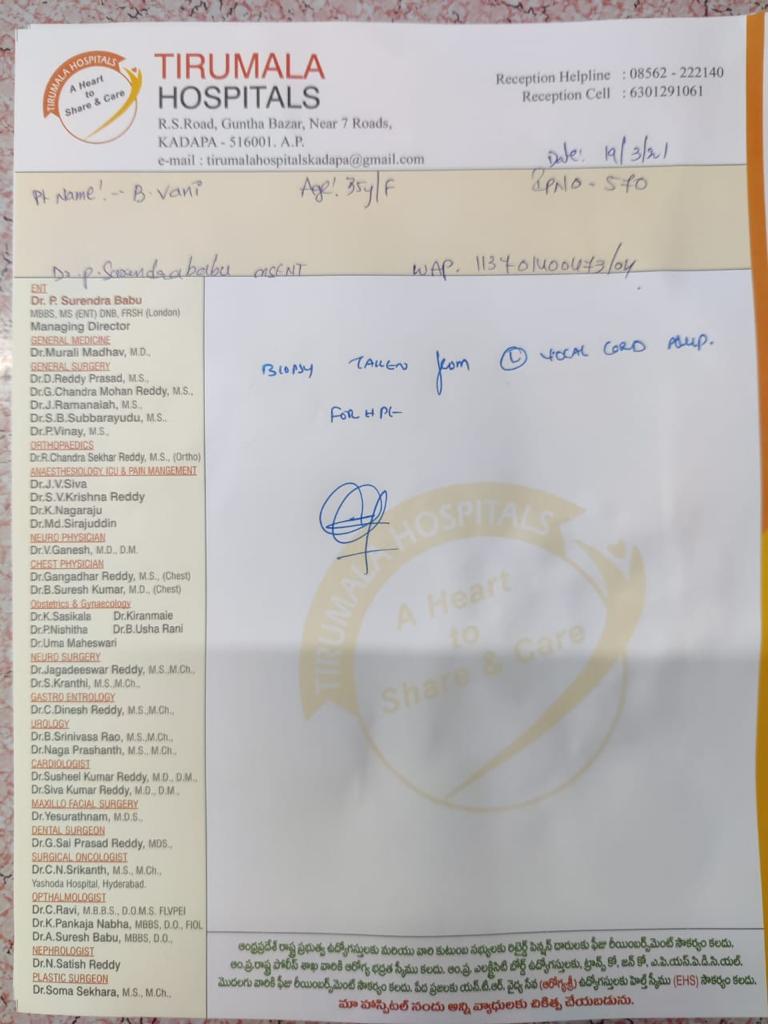 TIRUMALA HOSPITALS
A Heart
to
Share & Care
TIRUMALA
HOSPITALS
R.S.Road, Guntha Bazar, Near 7 Roads,
KADAPA - 516001. A.P.
e-mail : tirumalahospitalskadapa@gmail.com
Reception Helpline : 08562 - 222140
Reception Cell : 6301291061
Date: 19/3/21
Pt Name:- B. Vani Age: 35y/F IPNO - 570
Dr. P. Surendrababu MSENT WAP. 113701400473/04
ENT
Dr. P. Surendra Babu
MBBS, MS (ENT) DNB, FRSH (London)
Managing Director
GENERAL MEDICINE
Dr.Murali Madhav, M.D.,
GENERAL SURGERY
Dr.D.Reddy Prasad, M.S.,
Dr.G.Chandra Mohan Reddy, M.S.,
Dr.J.Ramanaiah, M.S.,
Dr.S.B.Subbarayudu, M.S.,
Dr.P.Vinay, M.S.,
ORTHOPAEDICS
Dr.R.Chandra Sekhar Reddy, M.S., (Ortho)
ANAESTHESIOLOGY, ICU & PAIN MANGEMENT
Dr.J.V.Siva
Dr.S.V.Krishna Reddy
Dr.K.Nagaraju
Dr.Md.Sirajuddin
NEURO PHYSICIAN
Dr.V.Ganesh, M.D., D.M.
CHEST PHYSICIAN
Dr.Gangadhar Reddy, M.S., (Chest)
Dr.B.Suresh Kumar, M.D., (Chest)
Obstetrics & Gynaecology
Dr.K.Sasikala Dr.Kiranmaie
Dr.P.Nishitha Dr.B.Usha Rani
Dr.Uma Maheswari
NEURO SURGERY
Dr.Jagadeeswar Reddy, M.S.,M.Ch.,
Dr.S.Kranthi, M.S.,M.Ch.,
GASTRO ENTROLOGY
Dr.C.Dinesh Reddy, M.S.,M.Ch.,
UROLOGY
Dr.B.Srinivasa Rao, M.S.,M.Ch.,
Dr.Naga Prashanth, M.S., M.Ch.,
CARDIOLOGIST
Dr.Susheel Kumar Reddy, M.D., D.M.,
Dr.Siva Kumar Reddy, M.D., D.M.,
MAXILLO FACIAL SURGERY
Dr.Yesurathnam, M.D.S.,
DENTAL SURGEON
Dr.G.Sai Prasad Reddy, MDS.,
SURGICAL ONCOLOGIST
Dr.C.N.Srikanth, M.S., M.Ch.,
Yashoda Hospital, Hyderabad.
OPTHALMOLOGIST
Dr.C.Ravi, M.B.B.S., D.O.M.S. FLVPEI
Dr.K.Pankaja Nabha, MBBS, D.O., FIOL
Dr.A.Suresh Babu, MBBS, D.O.,
NEPHROLOGIST
Dr.N.Satish Reddy
PLASTIC SURGEON
Dr.Soma Sekhara, M.S., M.Ch.,
BIOPSY TAKEN from (L) VOCAL CORD POLYP.
FOR HPE
TIRUMALA HOSPITALS
A Heart
to
Share & Care
ఆంధ్రప్రదేశ్ రాష్ట్ర ప్రభుత్వ ఉద్యోగస్తులకు మరియు వారి కుటుంబ సభ్యులకు రిటైర్డ్ పెన్షన్ దారులకు ఫీజు రీయింబర్స్‌మెంట్ సౌకర్యం కలదు.
ఆం.ప్ర.రాష్ట్ర పోలీస్ శాఖ వారికి ఆరోగ్య భద్రత స్కీము కలదు. ఆం.ప్ర. ఎలక్ట్రిసిటీ బోర్డ్ ఉద్యోగులకు, ట్రాన్స్ కో, జెన్ కో, ఎ.పి.యస్.పి.డి.సి.యల్.
మొదలగు వారికి ఫీజు రీయింబర్స్‌మెంట్ సౌకర్యం కలదు. పేద ప్రజలకు యన్.టి.ఆర్. వైద్య సేవ (ఆరోగ్యశ్రీ) ఉద్యోగస్తులకు హెల్త్ స్కీము (EHS) సౌకర్యం కలదు.
మా హాస్పిటల్ నందు అన్ని వ్యాధులకు చికిత్స చేయబడును.